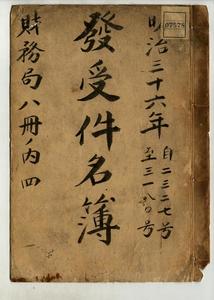 07578
明治三十六年
自二三二七号
至三一八〇号
發受件名簿
財務局八冊ノ内四